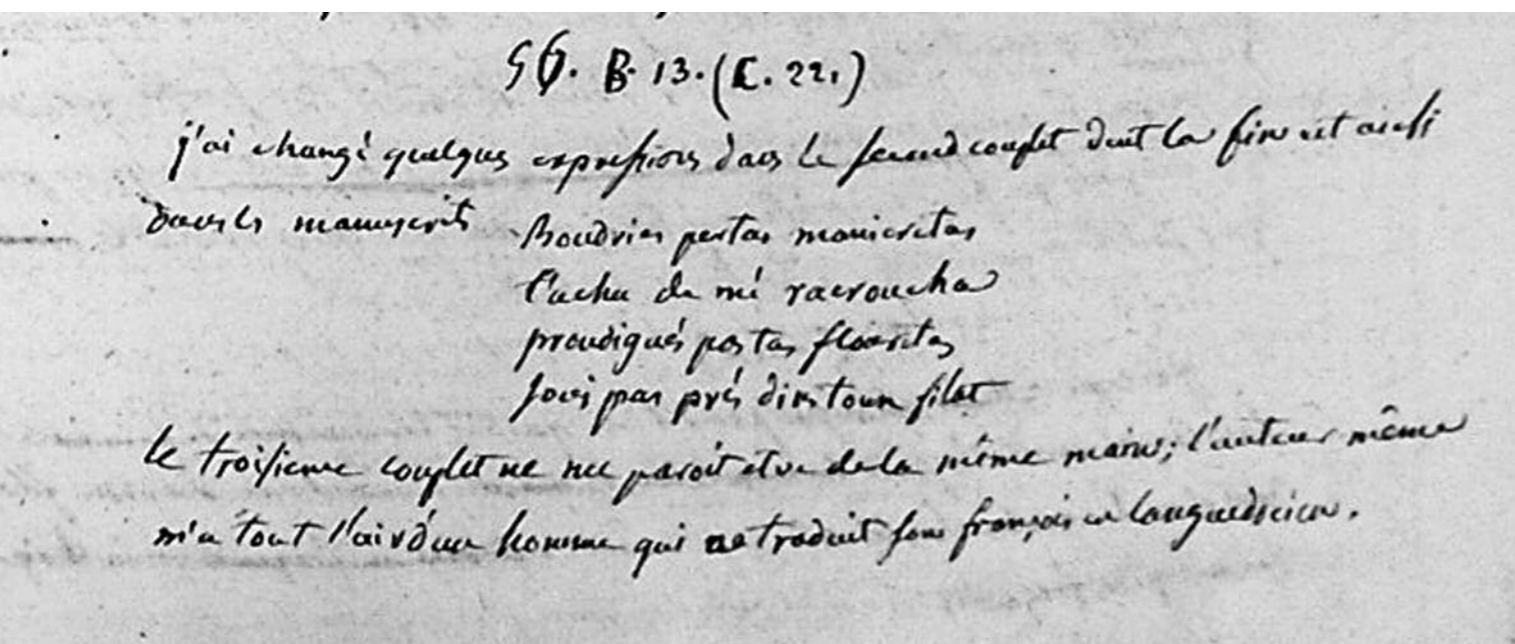 56. B. 13. (C. 22.)
j'ai changé quelques expressions dans le second couplet dont la fin est ainsi
dans les manuscrits Boudrias pertas manieretas
l'acha de mé racroucha
proudigués pas tas flouretas
soui pas prés dins toun filat
le troisieme couplet ne me paroit etre de la même main; l'auteur même
m'a tout l'air d'un homme qui a traduit son françois en languedocien.